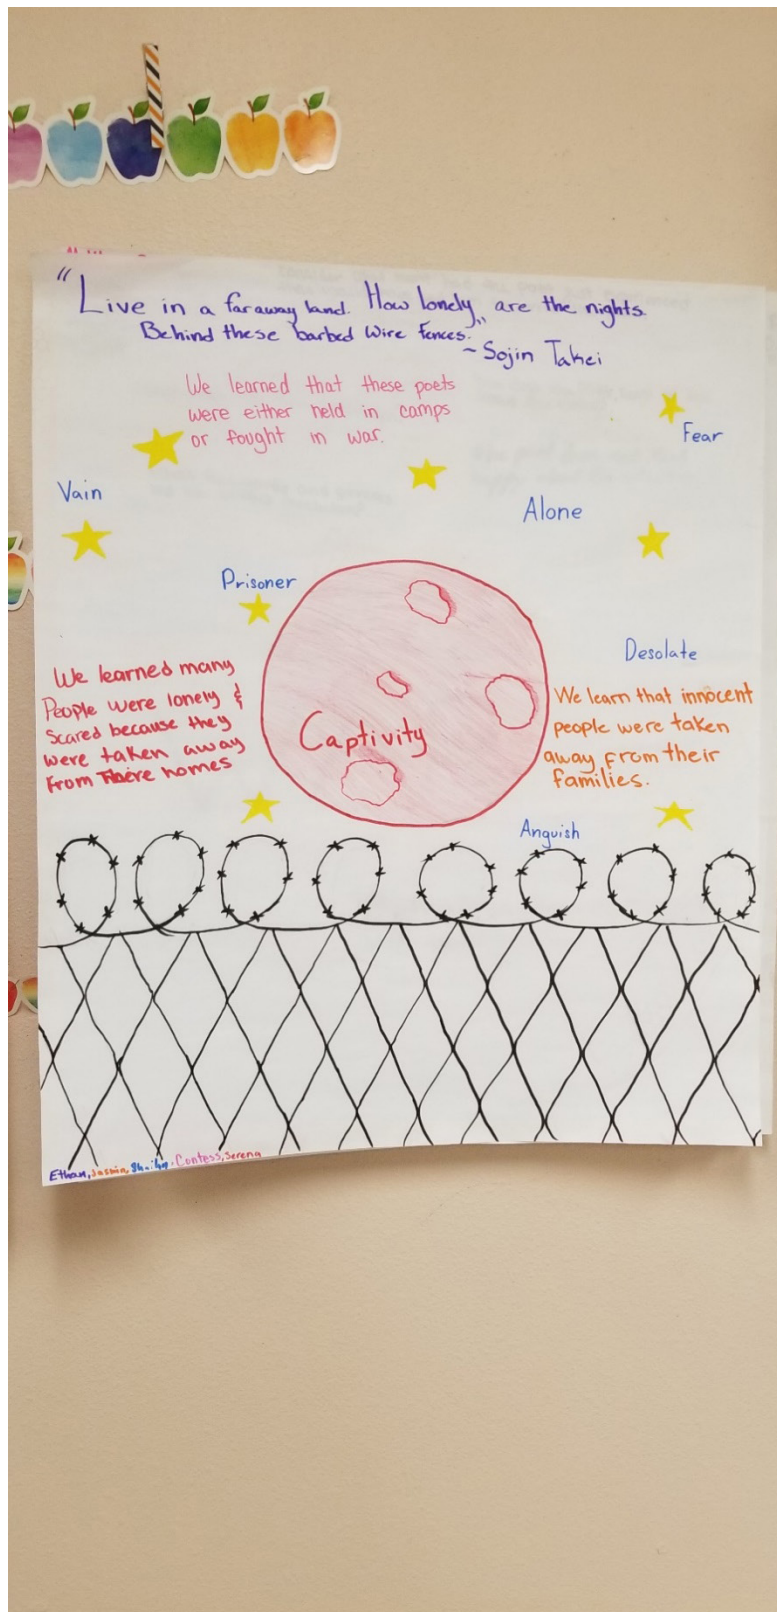 "Live in a faraway land. How lonely are the nights.
Behind these barbed wire fences."
~ Sojin Takei
We learned that these poets
were either held in camps
or fought in war.
Fear
Vain
Alone
Prisoner
Desolate
We learned many
People were lonely &
scared because they
were taken away
from There homes
Captivity
We learn that innocent
people were taken
away from their
families.
Anguish
Ethan, Jasmin, Contess, Serena